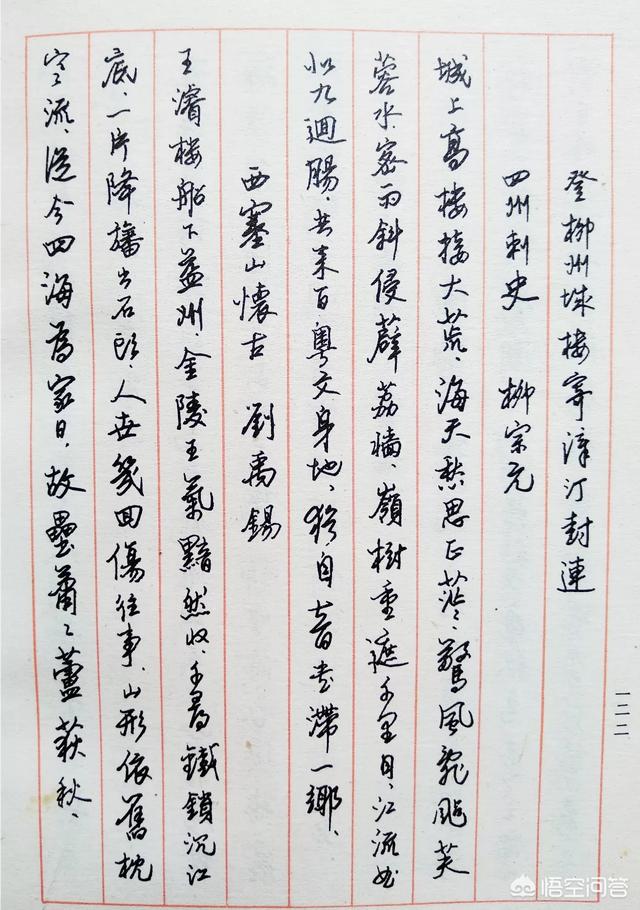 登柳州城楼寄漳汀封連
四州刺史　柳宗元
城上高楼接大荒、海天愁思正茫、驚風亂颭芙
蓉水、密雨斜侵薜荔墙、嶺樹重遮千里目、江流如
似九迴腸、共来百粤文身地、猶自音书滯一鄉、
西塞山懷古　劉禹錫
王濬楼船下益州、金陵王氣黯然收、千尋鐵鎖沉江
底、一片降旛出石頭、人世幾回傷往事、山形依舊枕
寒流、從今四海为家日、故壘蕭々蘆荻秋、
一二二
悟空问答